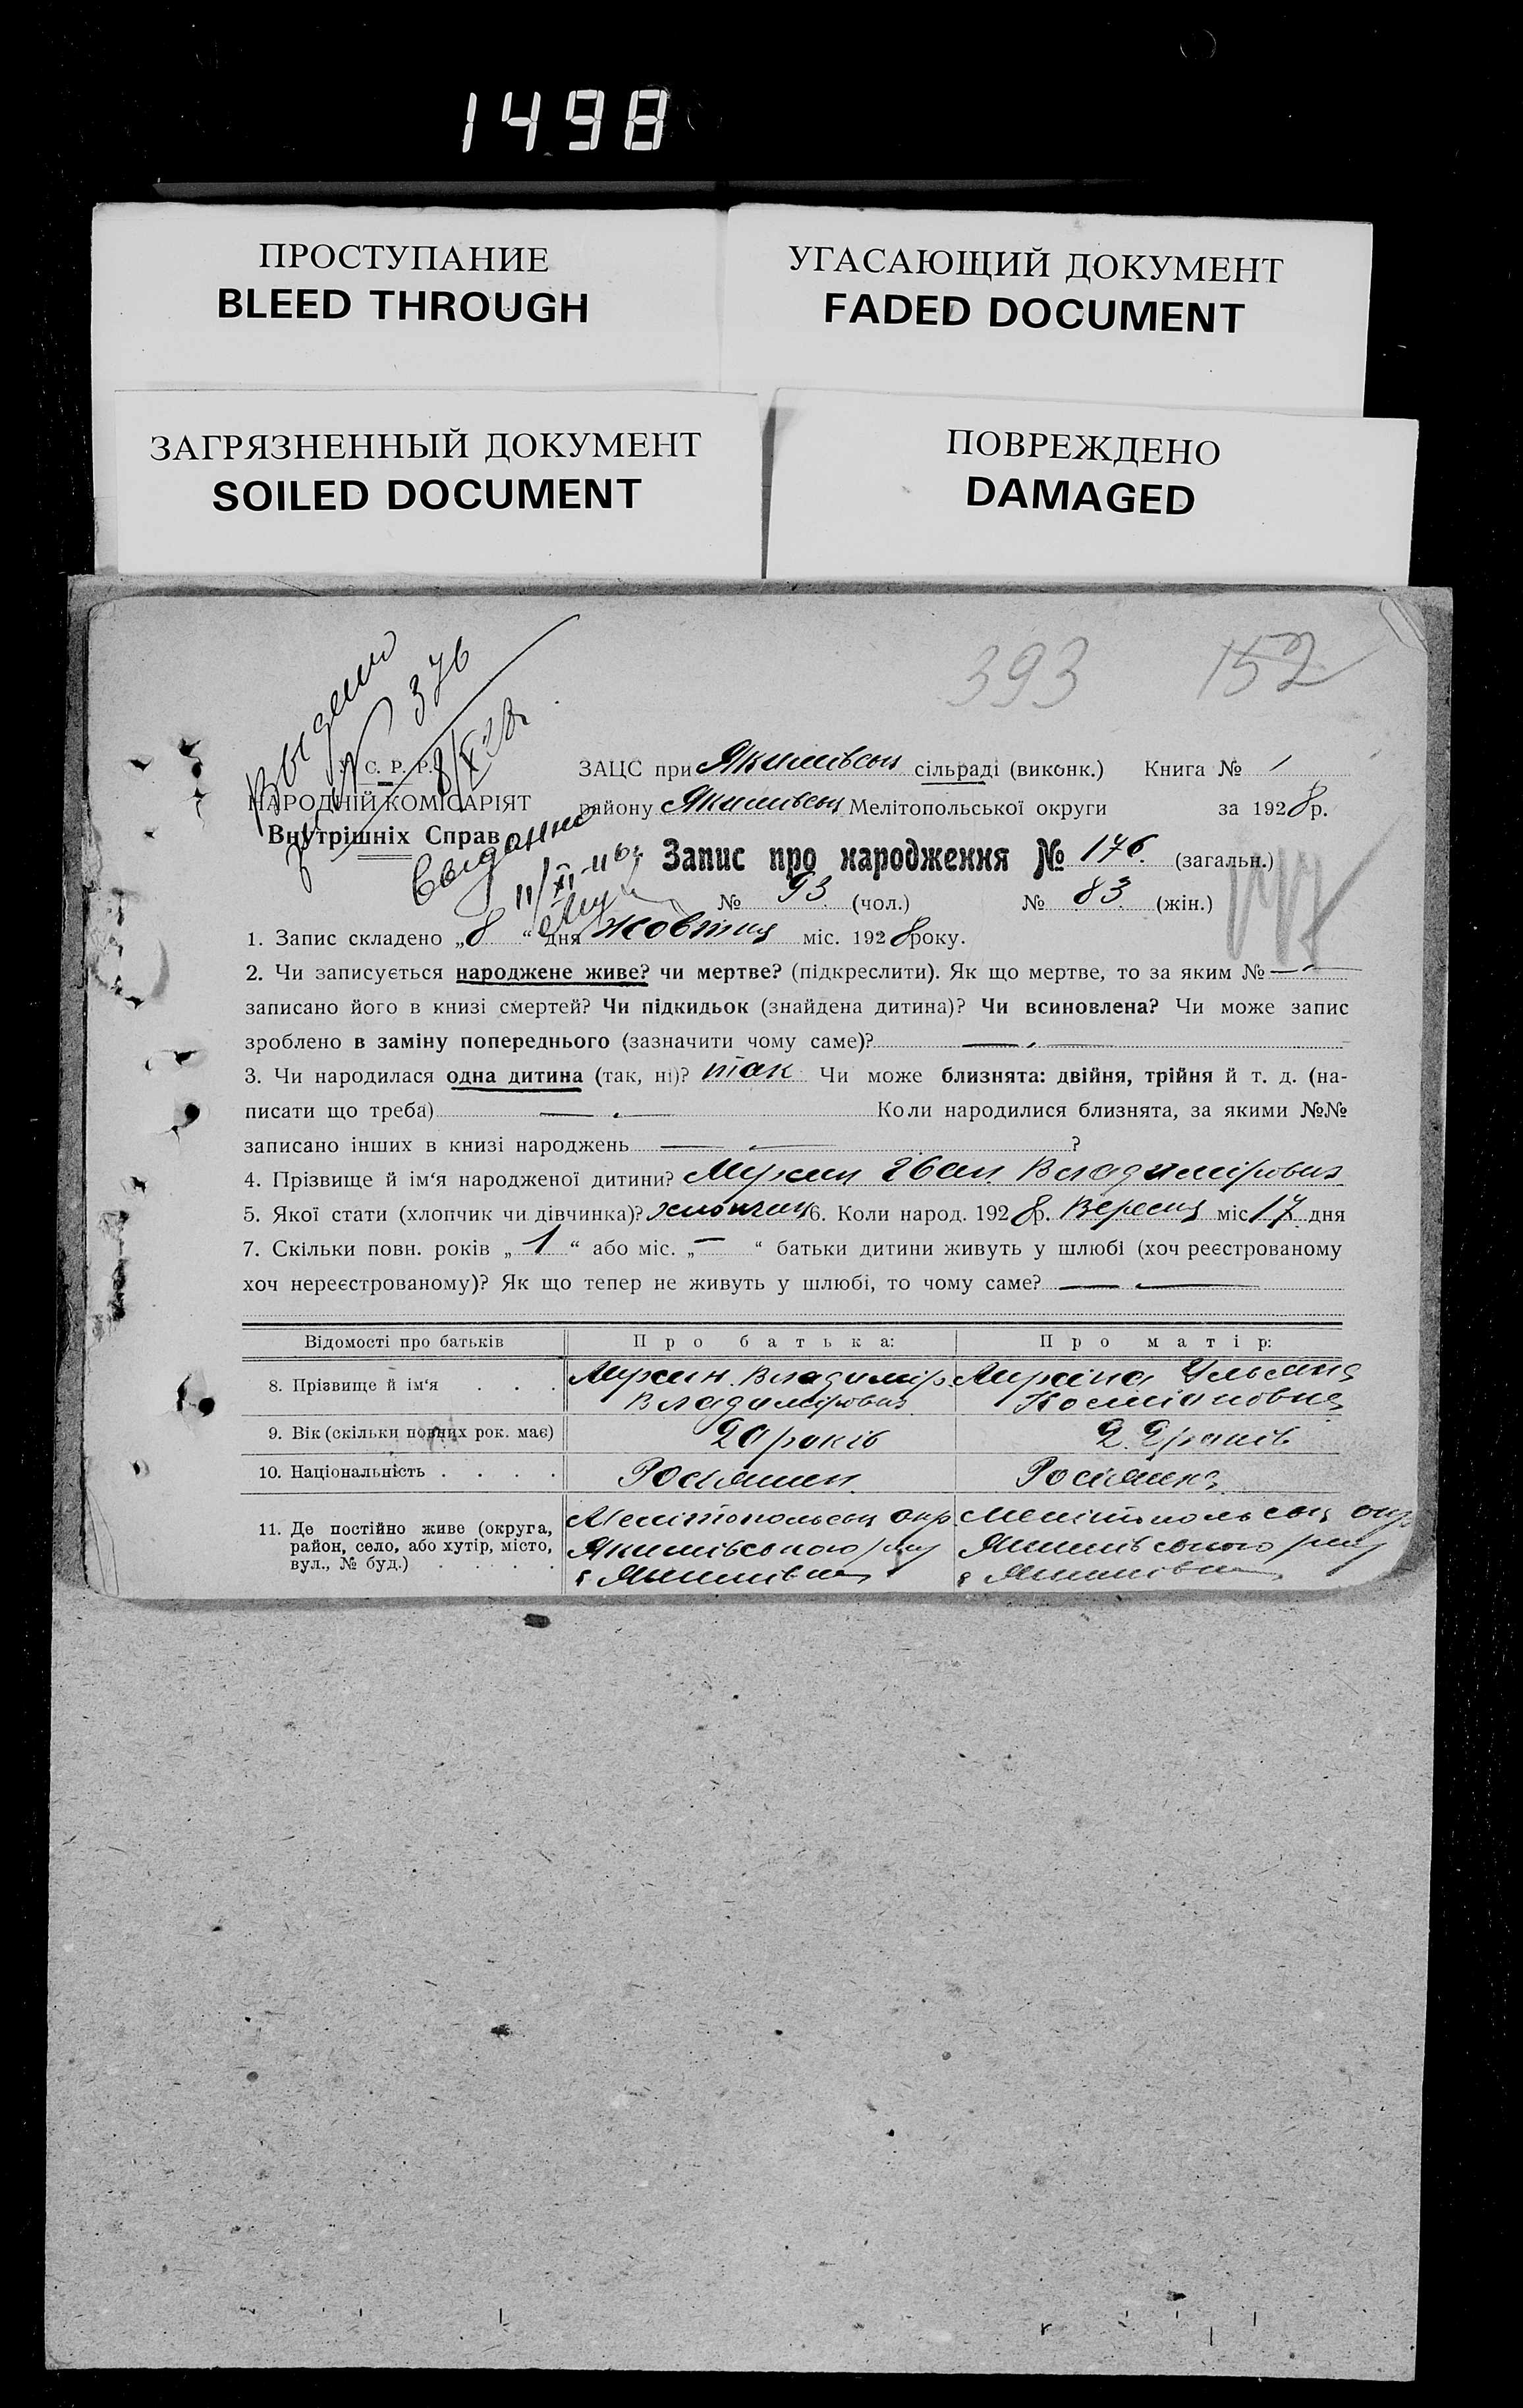 1498
ПРОСТУПАНИЕ
BLEED THROUGH
УГАСАЮЩИЙ ДОКУМЕНТ
FADED DOCUMENT
ЗАГРЯЗНЕННЫЙ ДОКУМЕНТ
SOILED DOCUMENT
ПОВРЕЖДЕНО
DAMAGED
393 152
№ 376
У. С. Р. Р.
НАРОДНІЙ КОМІСАРІЯТ
Внутрішніх Справ
ЗАЦС при сільраді (виконк.) Книга № 1
району Мелітопольської округи за 1928 р.
Запис про народження № 176. (загальн.)
№ 93. (чол.) № 83. (жін.)
1. Запис складено „8“ дня Жовтня міс. 1928 року.
2. Чи записується народжене живе? чи мертве? (підкреслити). Як що мертве, то за яким № —
записано його в книзі смертей? Чи підкидьок (знайдена дитина)? Чи всиновлена? Чи може запис
зроблено в заміну попереднього (зазначити чому саме)? —
3. Чи народилася одна дитина (так, ні)? так Чи може близнята: двійня, трійня й т. д. (на-
писати що треба) — Коли народилися близнята, за якими №№
записано інших в книзі народжень — ?
4. Прізвище й ім‘я народженої дитини? Іван Владимірович
5. Якої стати (хлопчик чи дівчинка)? хлопчик 6. Коли народ. 1928 р. Вересня міс 17 дня
7. Скільки повн. років „1“ або міс. „—“ батьки дитини живуть у шлюбі (хоч реєстрованому
хоч нереєстрованому)? Як що тепер не живуть у шлюбі, то чому саме? —
Відомості про батьків Про батька: Про матір:
8. Прізвище й ім‘я . . . Владимір Ульяна
Владимірович
9. Вік (скільки повних рок. має) 20 років 22 років
10. Національність . . . . Росіянин. Росіянка
11. Де постійно живе (округа, Мелітопольськ окр. Мелітопольськ окр
район, село, або хутір, місто, Якимівського р-ну Якимівського р-ну
вул., № буд.) . . . . с Якимівка с Якимівка